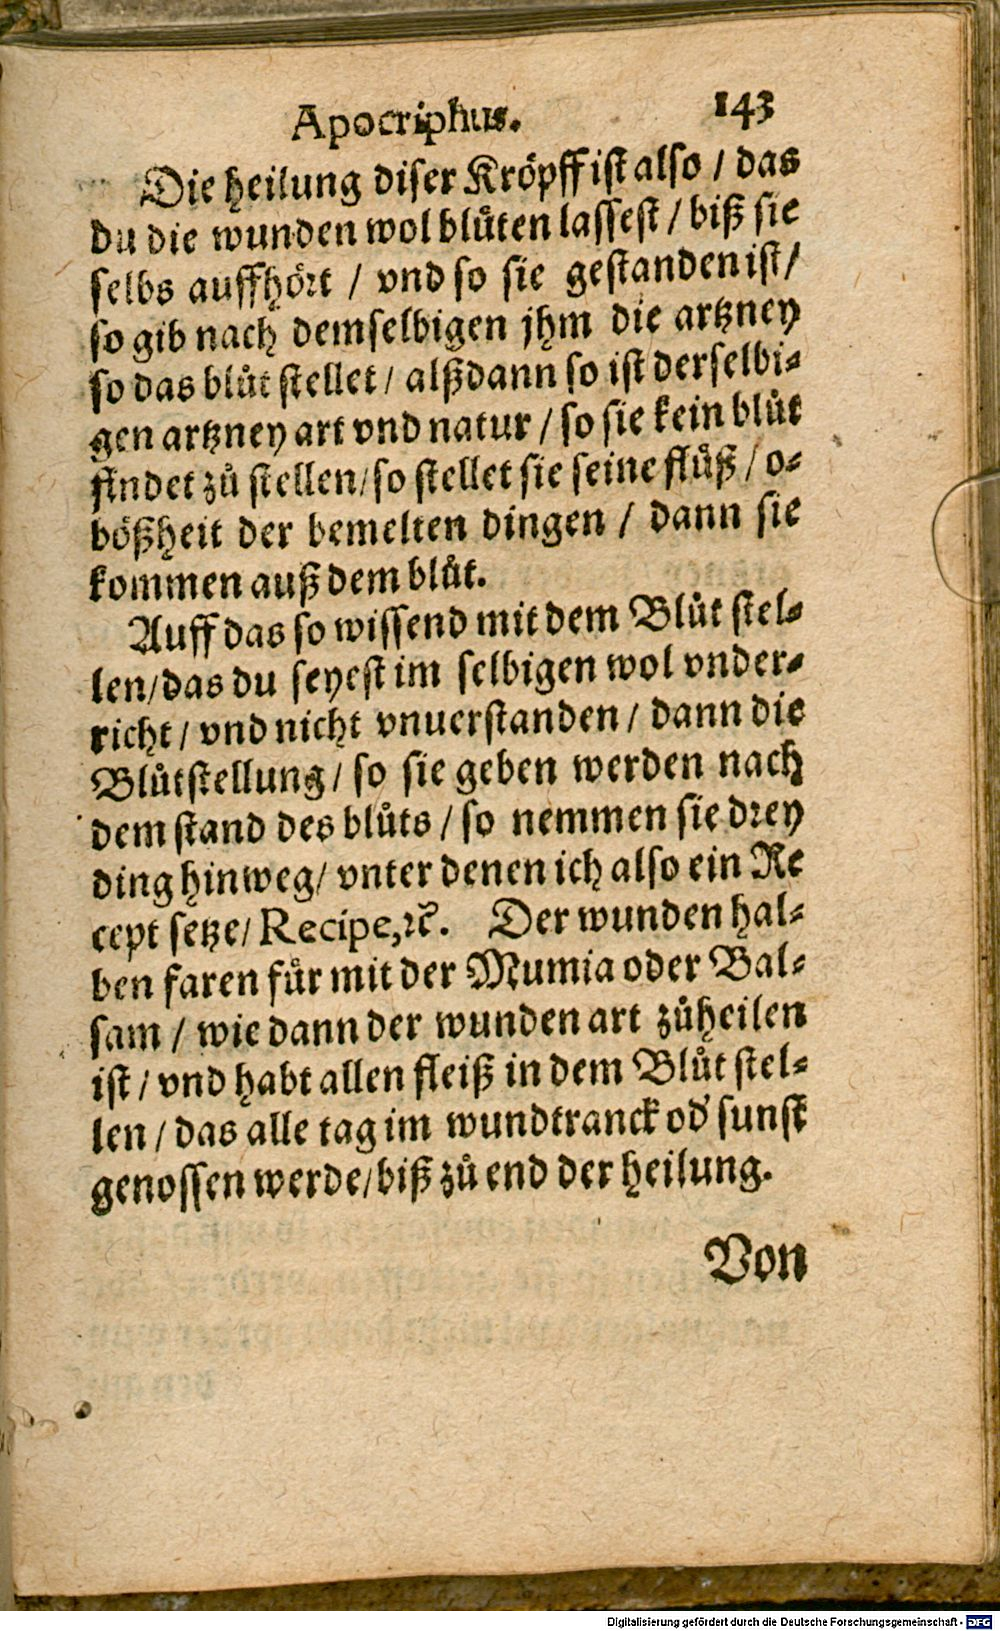 Apocriphus. 143
Die heilung diser Kröpff ist also / das
du die wunden wol blůten lassest / biß sie
selbs auffhört / vnd so sie gestanden ist /
so gib nach demselbigen jhm die artzney
so das blůt stellet / alßdann so ist derselbi-
gen artzney art vnd natur / so sie kein blůt
findet zů stellen / so stellet sie seine flůß / o-
bößheit der bemelten dingen / dann sie
kommen auß dem blůt.
Auff das so wissend mit dem Blůt stel-
len / das du seyest im selbigen wol vnder-
richt / vnd nicht vnuerstanden / dann die
Blůtstellung / so sie geben werden nach
dem stand des blůts / so nemmen sie drey
ding hinweg / vnter denen ich also ein Re
cept setze / Recipe, ꝛc̃. Der wunden hal-
ben faren für mit der Mumia oder Bal-
sam / wie dann der wunden art zůheilen
ist / vnd habt allen fleiß in dem Blůt stel-
len / das alle tag im wundtranck od' sunst
genossen werde / biß zů end der heilung.
Von
Digitalisierung gefördert durch die Deutsche Forschungsgemeinschaft - DFG